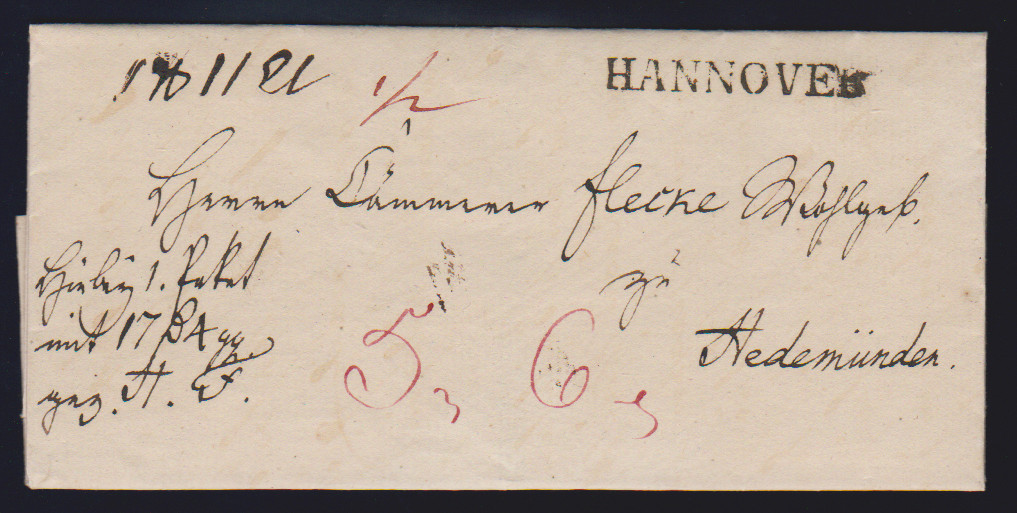 1/2
HANNOVER
Herrn Cämmerer Flecke Wohlgeb.
zu
Hedemünden.
Hiebey 1. Paket
mit 17 4 gg.
gez. H. F.
5
6